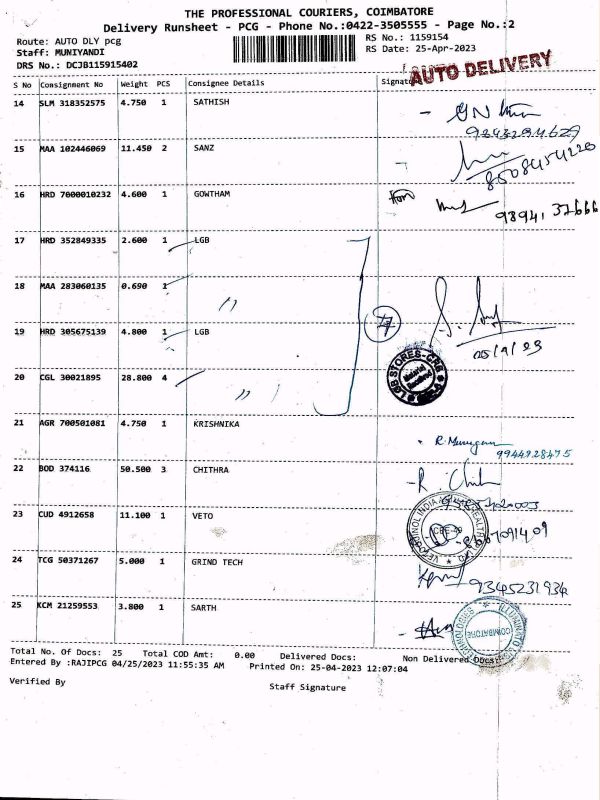 THE PROFESSIONAL COURIERS, COIMBATORE
Delivery Runsheet - PCG - Phone No.:0422-3505555 - Page No.:2
Route: AUTO DLY pcg
RS No.: 1159154
Staff: MUNIYANDI
RS Date: 25-Apr-2023
DRS No.: DCJB115915402
AUTO DELIVERY
S No Consignment No Weight PCS Consignee Details Signature
14 SLM 318352575 4.750 1 SATHISH
15 MAA 102446069 11.450 2 SANZ
8508454220
16 HRD 7000010232 4.600 1 GOWTHAM
98941 37666
17 HRD 352849335 2.600 1 LGB
18 MAA 283060135 0.690 1 "
19 HRD 305675139 4.800 1 LGB
LGB STORES-CRB
Material Received
20 CGL 30021895 28.800 4 " "
21 AGR 700501081 4.750 1 KRISHNIKA
R. Murugan
9944928475
22 BOD 374116 50.500 3 CHITHRA
R. Chithra
23 CUD 4912658 11.100 1 VETO
24 TCG 50371267 5.000 1 GRIND TECH
9345231934
25 KCM 21259553 3.800 1 SARTH
TECHNOLOGIES
COIMBATORE
Total No. Of Docs: 25 Total COD Amt: 0.00 Delivered Docs: Non Delivered Docs:
Entered By :RAJIPCG 04/25/2023 11:55:35 AM Printed On: 25-04-2023 12:07:04
Verified By
Staff Signature